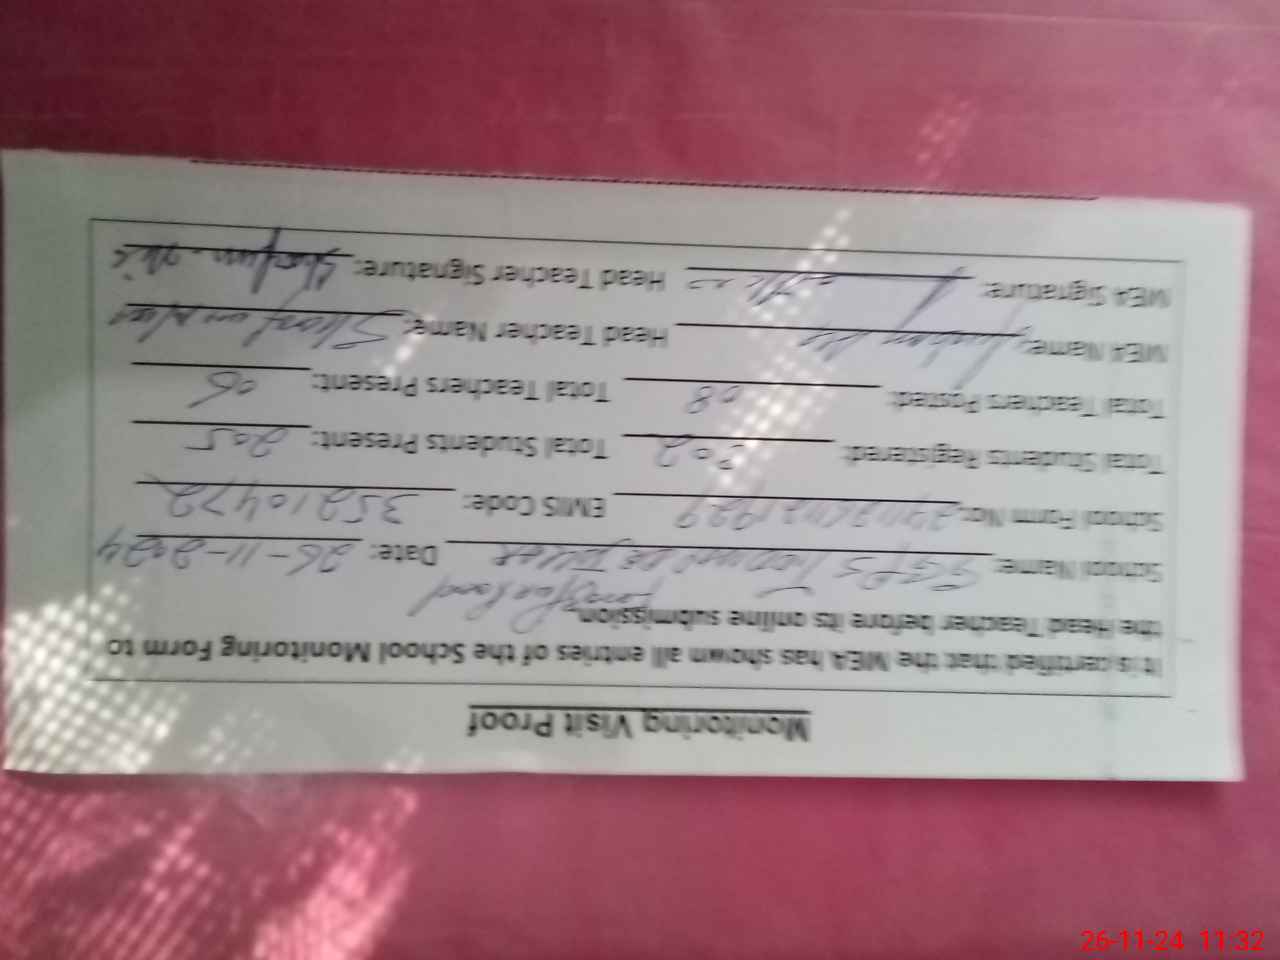 Monitoring Visit Proof
It is certified that the MEA has shown all entries of the School Monitoring Form to
the Head Teacher before its online submission.
School Name: GGPS Date: 26-11-2024
School Form No: EMIS Code: 35210472
Total Students Registered: 302 Total Students Present: 205
Total Teachers Posted: 08 Total Teachers Present: 05
MEA Name: Head Teacher Name:
MEA Signature: Head Teacher Signature:
26-11-24 11:32